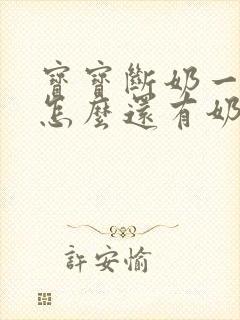 寶寶斷奶一
怎麼還有奶
許安愉